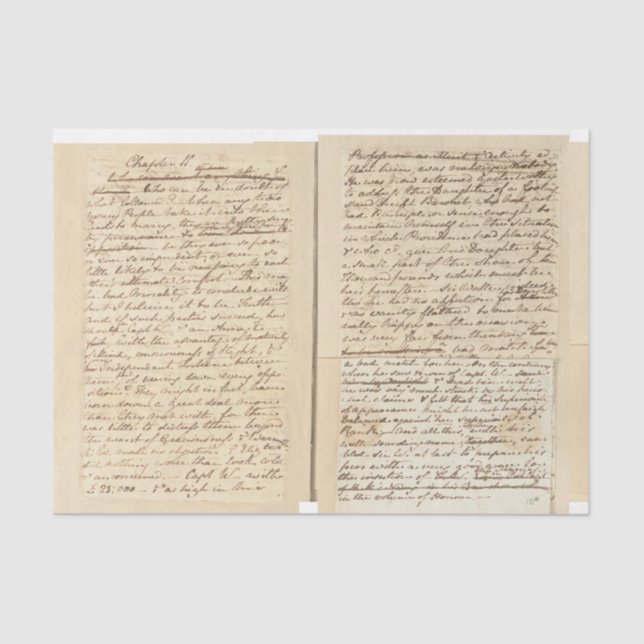 Chapter 11.
Who can be in doubt of
what followed? When any two
Young People take it into their
heads to marry, they are pretty sure
by perseverance to carry their point
be they ever so poor,
or ever so imprudent, or ever so
little likely to be necessary to each
other's ultimate comfort. This may
be bad Morality to conclude with,
but I believe it to be Truth—
and if such parties succeed, how
should Capt W— & an Anne E—
fail, with the advantage of Maturity
of Mind, consciousness of Right, &
one Independant Fortune between
them, of bearing down every oppo-
sition? They might in fact, have
born down a great deal more
than they met with, for there
was little to distress them beyond
the want of Graciousness & Warmth.
Sir W. made no objection, & Eliz:
did nothing worse than look cold
& unconcerned.— Capt W— with
£25,000— & as high in his
Profession as Merit & Activity
was no longer nobody.
He was now esteemed quite worthy
to address the Daughter of a foolish
spendthrift Baronet, who had not
had Principle or sense enough to
maintain himself in the Situation
in which Providence had placed him,
& who cd. give his Daughter but
a small part of the share of ten
Thousand pounds which must be
hers hereafter. Sir Walter indeed
tho' he had no affection for
vanity flattered to make him
really happy on the occasion,
was very far from thinking
a bad match for her. On the contrary
when he saw more of Capt W.
& eyed him well
he was very much struck by his personal
claims & felt that his superiority
of appearance might be not unfairly
balanced against her superiority of
Rank;— And all this, with his
well-sounding name, together, ena-
bled Sir W. at last to prepare his
pen with a very good grace for
the insertion of the Marriage
in the volume of Honour.—